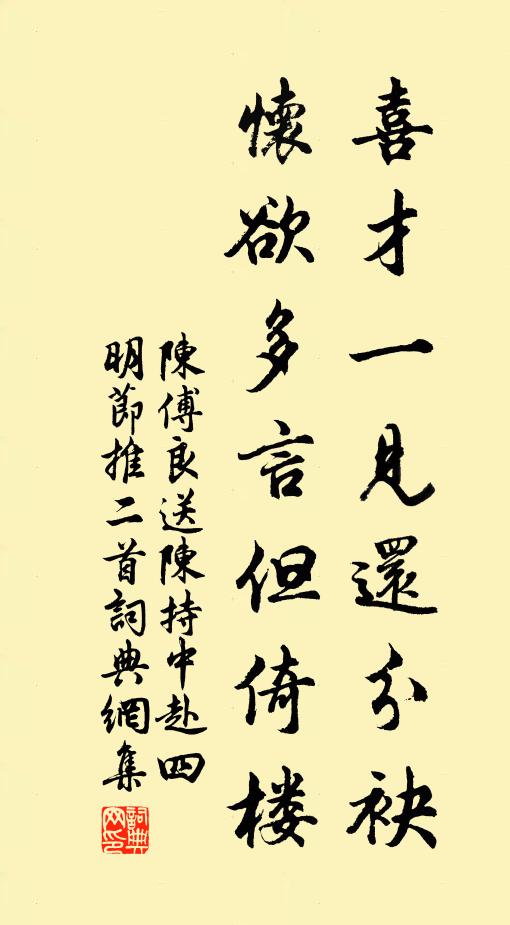 喜才一見還分袂
懷欲多言但倚楼
陳傅良送陳持中赴四
明節推二首詞典網集
詞典
网印